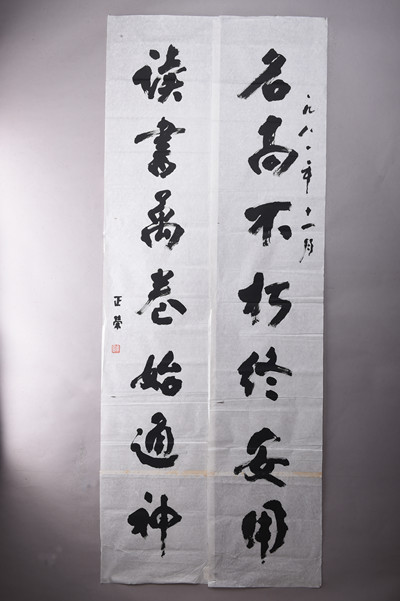 一九八 年十一月
名高不朽终安用
读書萬卷始通神
正榮